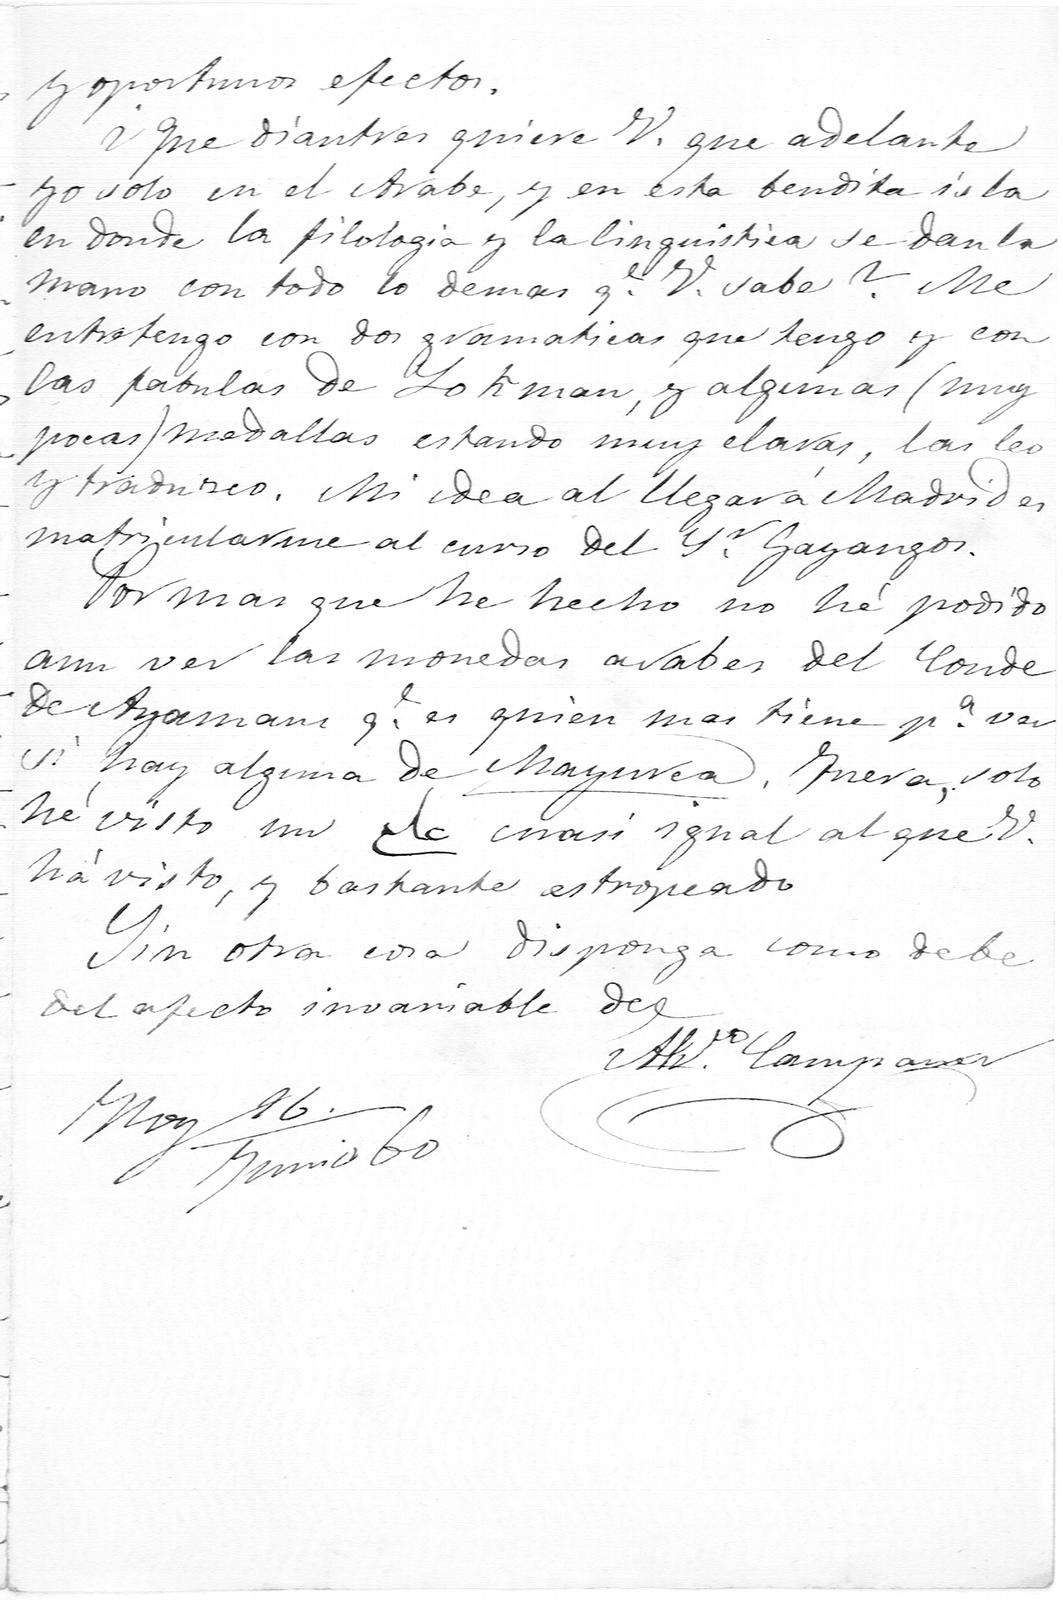 y oportunos efectos.
¿Que diantres quiere V. que adelante
yo solo en el Arabe, y en esta bendita isla
en donde la filologia y la linguistica se dan la
mano con todo lo demas q.e V. sabe? Me
entretengo con dos gramaticas que tengo y con
las fabulas de Lokman, y algunas (muy
pocas) medallas estando muy claras, las leo
y traduzco. Mi idea al llegar á Madrid es
matricularme al curso del S.r Gayangos.
Por mas que he hecho no hé podido
aun ver las monedas arabes del Conde
de Ayamans q.e es quien mas tiene p.a ver
si hay alguna de Mayurca. Fuera, solo
hé visto un علي cuasi igual al que V.
há visto, y bastante estropeado
Sin otra cosa disponga como debe
del afecto invariable de
Alv.ro Campaner
Hoy 16.
Junio 60